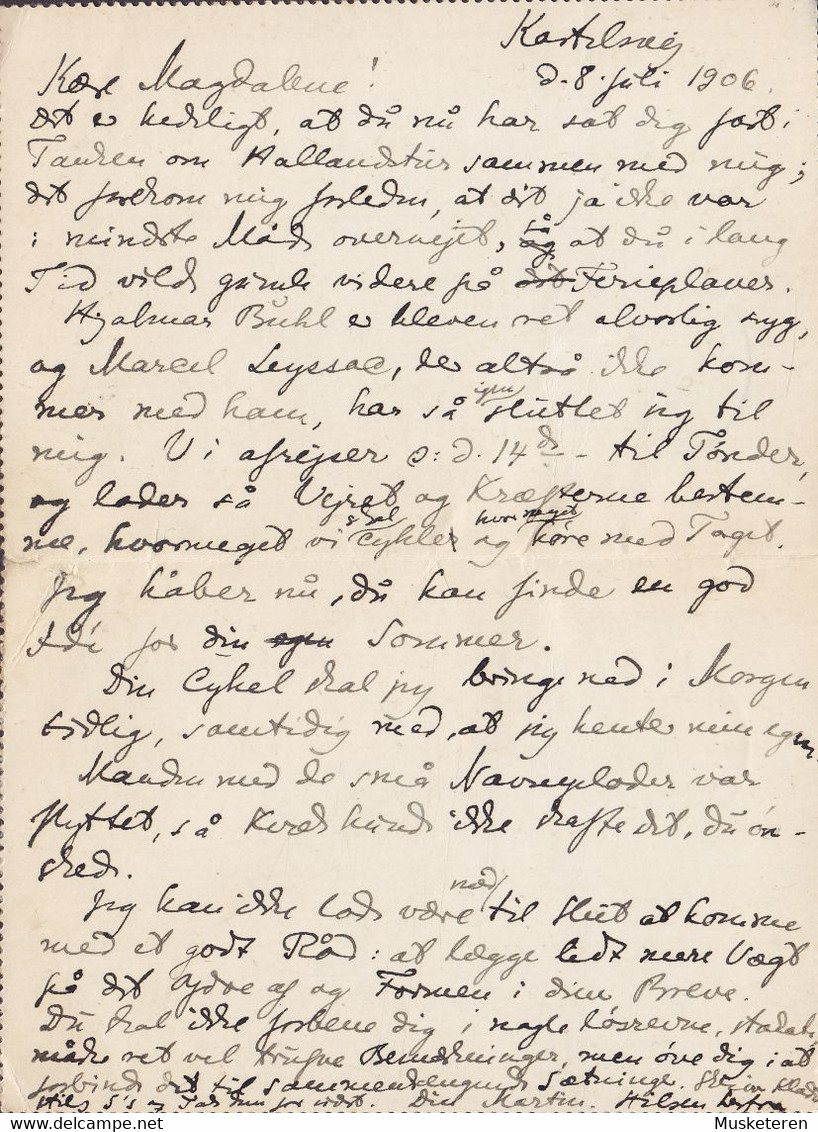 Kastelsvej
d. 8. Juli 1906.
Kære Magdalene!
Det er kedeligt, at du nu har sat dig fast i
Tanken om Hallandstur sammen med mig;
det forekom mig forleden, at dit ja ikke var
i mindste Måde overvejet, så at du i lang
Tid vilde gruble videre på Ferieplaner.
Hjalmar Buhl er bleven ret alvorlig syg,
og Marcel Leyssac, der altså ikke kom-
mer med ham, har så igen sluttet sig til
mig. Vi afrejser o: d. 14de - til Tønder,
og lader så Vejret og Kræfterne bestem-
me, hvormeget vi skal cykle og hvor meget køre med Toget.
Jeg håber nu, du kan finde en god
Idé for din Sommer.
Din Cykel skal jeg bringe ned i Morgen
tidlig, samtidig med, at jeg henter min egen.
Manden med de små Navneplader var
flyttet, så Kvæk kunde ikke skaffe det, du øn-
skede.
Jeg kan ikke lade være med til slut at komme
med et godt Råd: at lægge lidt mere Vægt
på det Ydre af og Formen i dine Breve.
Du skal ikke forbene dig i nogle løsrevne,
måske ret vel trufne Bemærkninger, men øve dig i at
forbinde det til sammenhængende Sætninger. Skriv
Hils Tak for sidst. Din Martin. Hilsen herfra.
© Musketeren
www.delcampe.net Musketeren